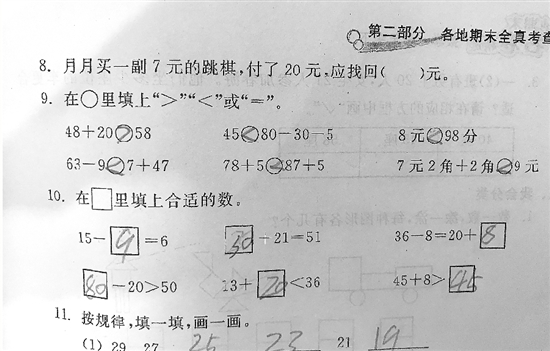 第二部分 各地期末全真考查
8. 月月买一副7元的跳棋,付了20元,应找回( )元。
9. 在○里填上“>”“<”或“=”。
48+20>58 45<80-30-5 8元>98分
63-9 7+47 78+5<87+5 7元2角+2角 9元
10. 在□里填上合适的数。
15-9=6 30+21=51 36-8=20+8
80-20>50 13+20<36 45+8>45
11. 按规律,填一填,画一画。
(1) 29 27 25 23 21 19